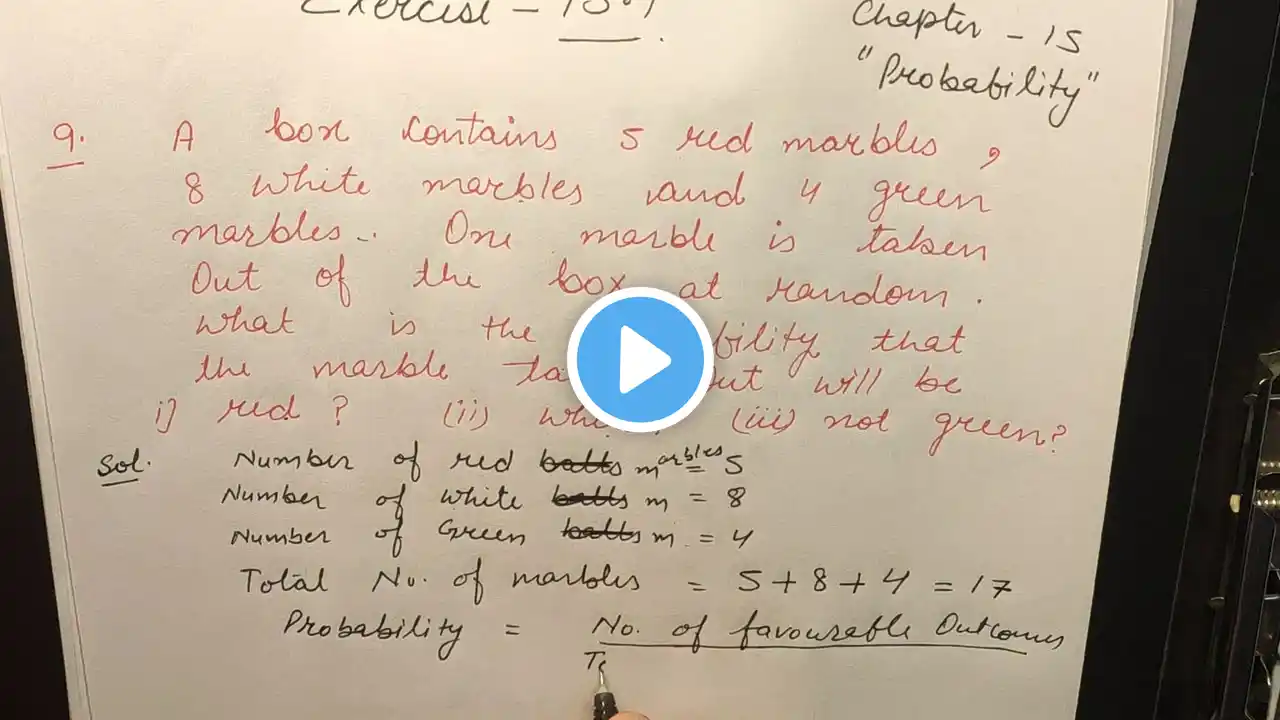 Exercise - 15.1
Chapter - 15
"Probability"
9. A box contains 5 red marbles,
8 white marbles and 4 green
marbles. One marble is taken
Out of the box at random.
What is the that
the marble out will be
i) red? (ii) (iii) not green?
Sol. Number of red balls marbles = 5
Number of white balls m = 8
Number of Green balls m = 4
Total No. of marbles = 5 + 8 + 4 = 17
Probability = No. of favourable Outcomes
To